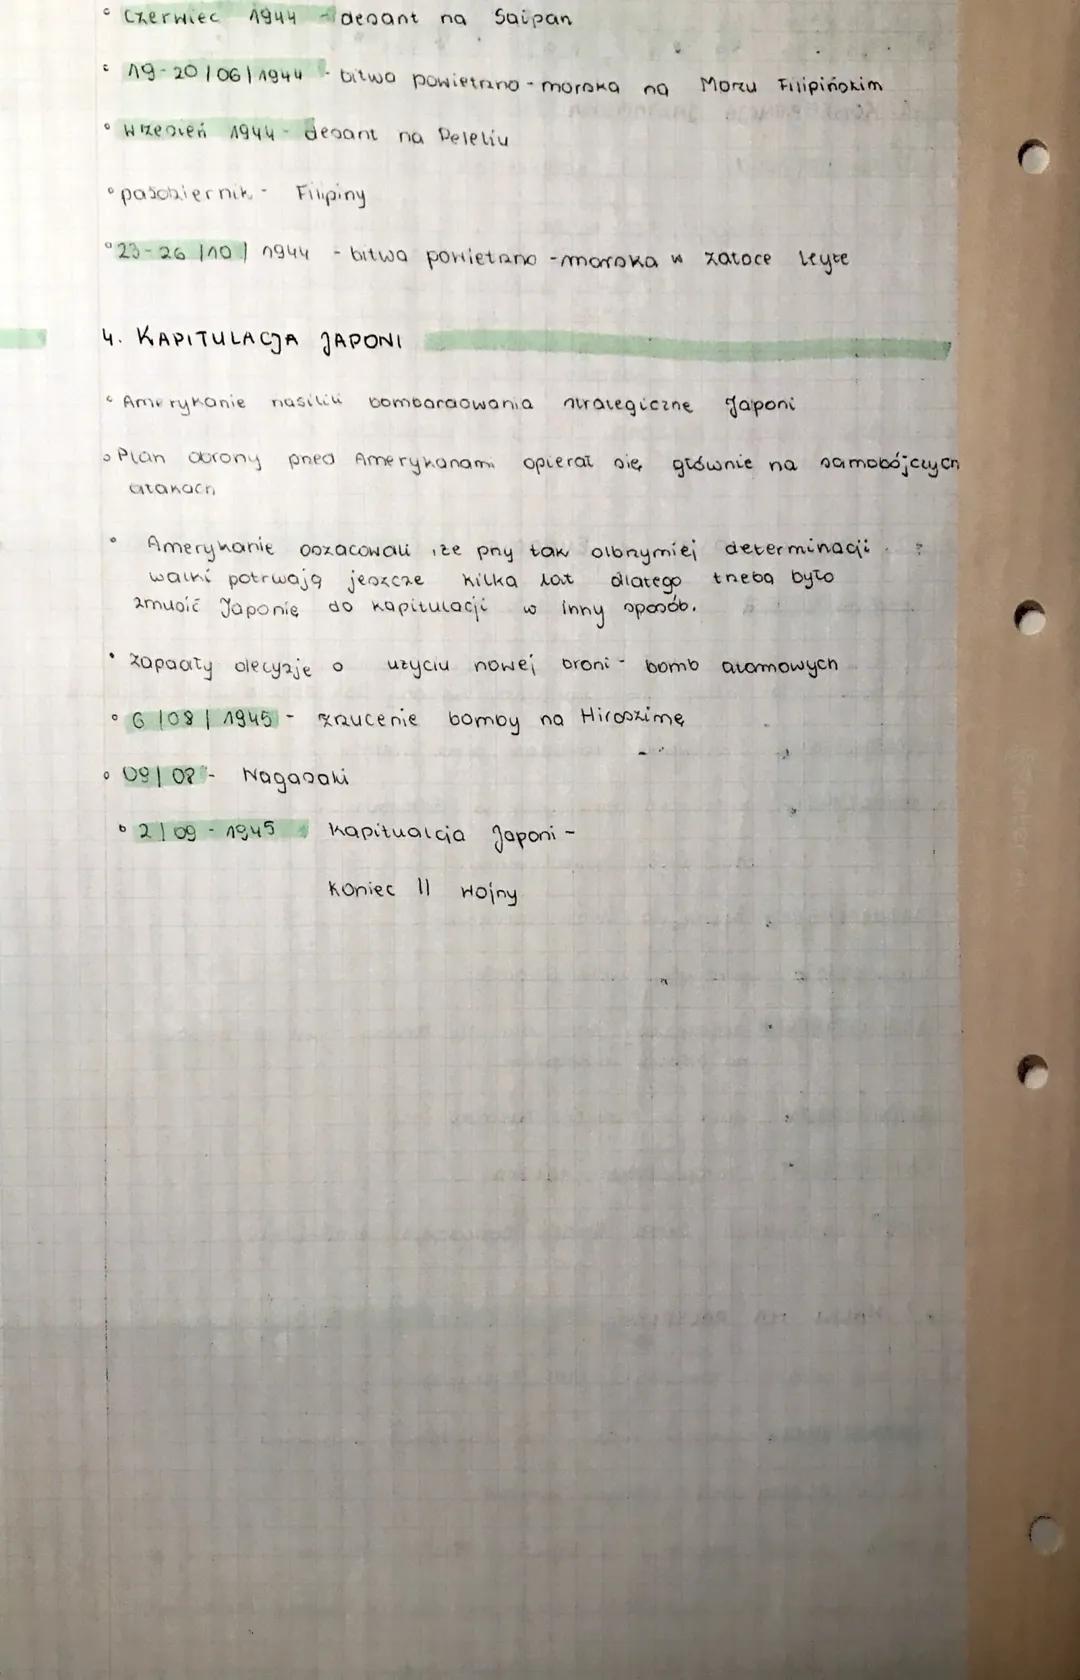 ° Czerwiec 1944 - desant na Saipan
° 19-20 | 06 | 1944 - bitwa powietrzno - morska na Morzu Filipińskim
° Wrzesień 1944 - desant na Peleliu
° październik - Filipiny
° 23-26 | 10 | 1944 - bitwa powietrzno - morska w zatoce Leyte
4. KAPITULACJA JAPONI
° Amerykanie nasilili bombardowania strategiczne Japoni
° Plan obrony przed Amerykanami opierał się głównie na samobójczych
atakach
° Amerykanie oszacowali, że przy tak olbrzymiej determinacji
walki potrwają jeszcze kilka lat dlatego trzeba było
zmusić Japonię do kapitulacji w inny sposób.
° Zapadły decyzje o użyciu nowej broni - bomb atomowych
° 6 | 08 | 1945 - zrzucenie bomby na Hiroszimę
° 09 | 08 - Nagasaki
° 2 | 09 - 1945 Kapitualcja Japoni -
koniec II wojny